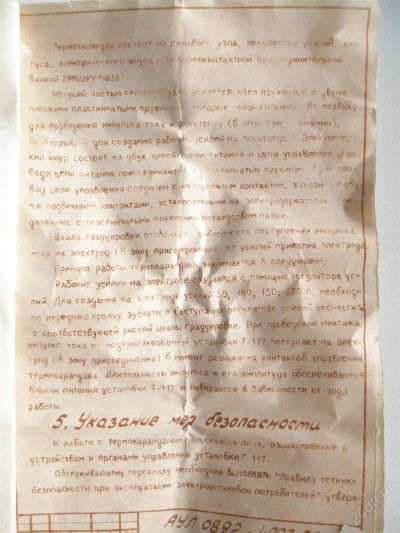 Термокарандаш состоит из силового узла, регулятора усилий, кор-
пуса, электрического шнура с четырехконтактной присоединительной
вилкой 2РМ22КУ
Несущей частью силового узла является узел пружинный с двумя
плоскими пластинчатыми пружинами, которые предназначены: Во-первых,
для подведения импульса тока к электроду (в зону присоединения),
во вторых, - для создания рабочих усилий на электроде. Электричес-
кий шнур состоит из двух цепей: цепи питания и цепи управления. Про-
вод цепи питания присоединяют к пластинчатым пружинам. Один про-
вод цепи управления соединен с неподвижным контактом, второй - с дву-
мя подвижными контактами, установленными на электродержателях, сое-
диненных с пластинчатыми пружинами посредством пайки.
Шкала градуировки отображает зависимость поступления импульса
тока на электрод (в зону присоединения) от усилий прижатия электрода.
Принцип работы термокарандаша заключается в следующем.
Рабочие усилия на электроде создаются с помощью регулятора уси-
лий. Для создания на электроде усилий 50, 100, 150, 200 г, необходи-
мо переднюю кромку зубчатого выступа на регуляторе усилий совместить
с соответствующей риской шкалы градуировки. При проведении монтажа
импульс тока от модернизированной установки Т-117 поступает на элек-
трод (в зону присоединения) в момент размыкания контактов управления
термокарандаша. Длительность импульса и его амплитуда обеспечиваются
блоком питания установки Т-117 и выбираются в зависимости от рода
работы.
5. Указание мер безопасности
К работе с термокарандашом допускаются лица, ознакомленные с
устройством и органами управления установки Т-117.
Обслуживающему персоналу необходимо выполнять "Правила техники
безопасности при эксплуатации электроустановок потребителей" утверж-
АУЛ 0892